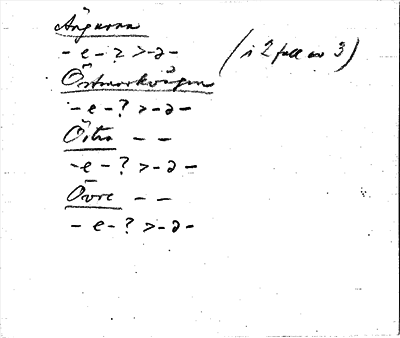 Ängarna
- e - ? > - ə - (i 2 fall av 3)
Östmarkvägen
- e - ? > - ə -
Östra — —
- e - ? > - ə -
Övre — —
- e - ? > - ə -